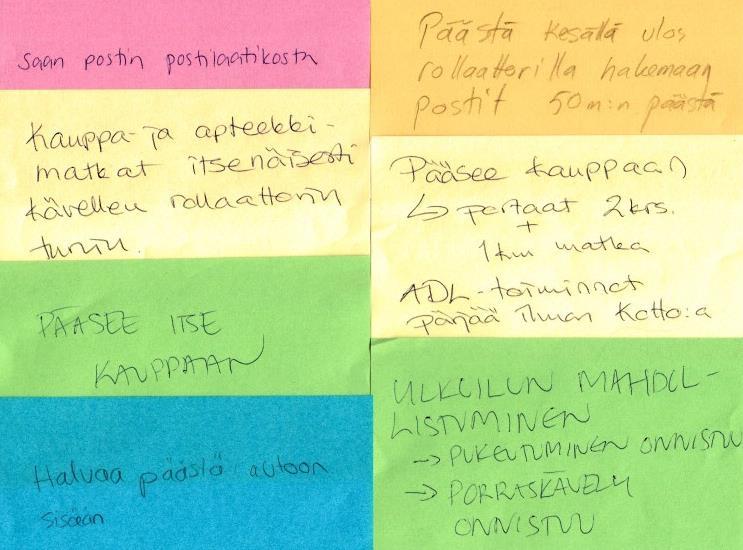 Saan postin postilaatikosta
Kauppa- ja apteekki-
matkat itsenäisesti
kävellen rollaattorin
turvin.
PÄÄSEE ITSE
KAUPPAAN
Haluaa päästä autoon
sisään
Päästä kesällä ulos
rollaattorilla hakemaan
postit 50m:n päästä
Pääsee kauppaan
↳ portaat 2krs.
+
1km matka
ADL-toiminnot
pärjää ilman Kotho:a
ULKOILUN MAHDOL-
LISTUMINEN
→ PUKEUTUMINEN ONNISTUU
→ PORRASKÄVELY
ONNISTUU